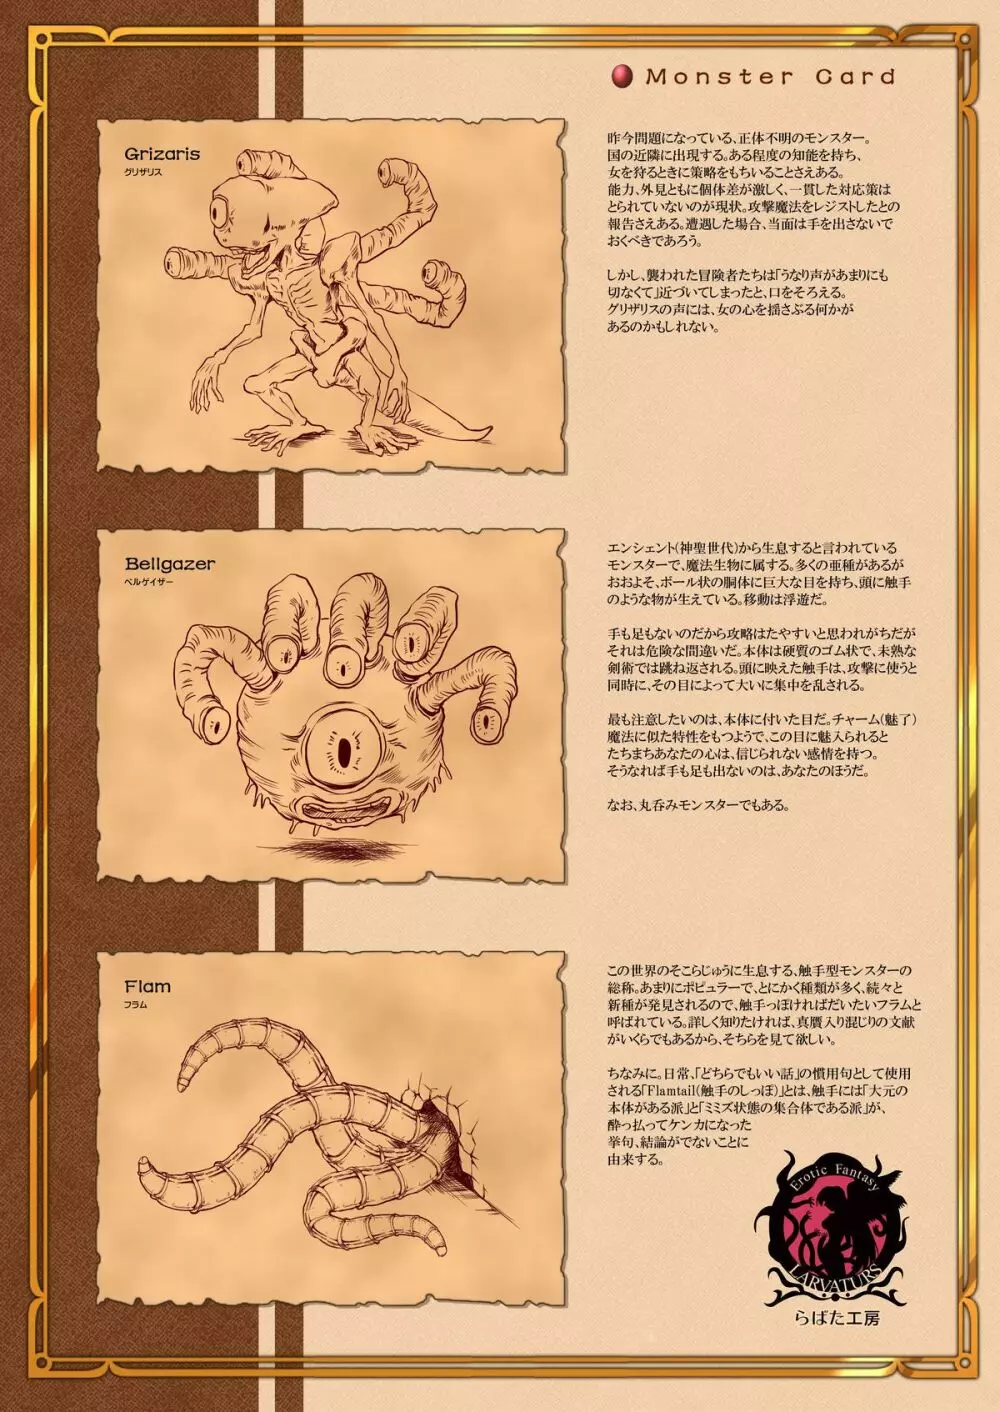 Monster Card
Grizaris
グリザリス
昨今問題になっている、正体不明のモンスター。
国の近隣に出現する。ある程度の知能を持ち、
女を狩るときに策略をもちいることさえある。
能力、外見ともに個体差が激しく、一貫した対応策は
とられていないのが現状。攻撃魔法をレジストしたとの
報告さえある。遭遇した場合、当面は手を出さないで
おくべきであろう。
しかし、襲われた冒険者たちは「うなり声があまりにも
切なくて」近づいてしまったと、口をそろえる。
グリザリスの声には、女の心を揺さぶる何かが
あるのかもしれない。
Bellgazer
ベルゲイザー
エンシェント(神聖世代)から生息すると言われている
モンスターで、魔法生物に属する。多くの亜種があるが
おおよそ、ボール状の胴体に巨大な目を持ち、頭に触手
のような物が生えている。移動は浮遊だ。
手も足もないのだから攻略はたやすいと思われがちだが
それは危険な間違いだ。本体は硬質のゴム状で、未熟な
剣術では跳ね返される。頭に映えた触手は、攻撃に使うと
同時に、その目によって大いに集中を乱される。
最も注意したいのは、本体に付いた目だ。チャーム(魅了)
魔法に似た特性をもつようで、この目に魅入られると
たちまちあなたの心は、信じられない感情を持つ。
そうなれば手も足も出ないのは、あなたのほうだ。
なお、丸呑みモンスターでもある。
Flam
フラム
この世界のそこらじゅうに生息する、触手型モンスターの
総称。あまりにポピュラーで、とにかく種類が多く、続々と
新種が発見されるので、触手っぽければだいたいフラムと
呼ばれている。詳しく知りたければ、真贋入り混じりの文献
がいくらでもあるから、そちらを見て欲しい。
ちなみに。日常、「どちらでもいい話」の慣用句として使用
される「Flamtail(触手のしっぽ)」とは、触手には「大元の
本体がある派」と「ミミズ状態の集合体である派」が、
酔っ払ってケンカになった
挙句、結論がでないことに
由来する。
Erotic Fantasy
LARVATURS
らばた工房